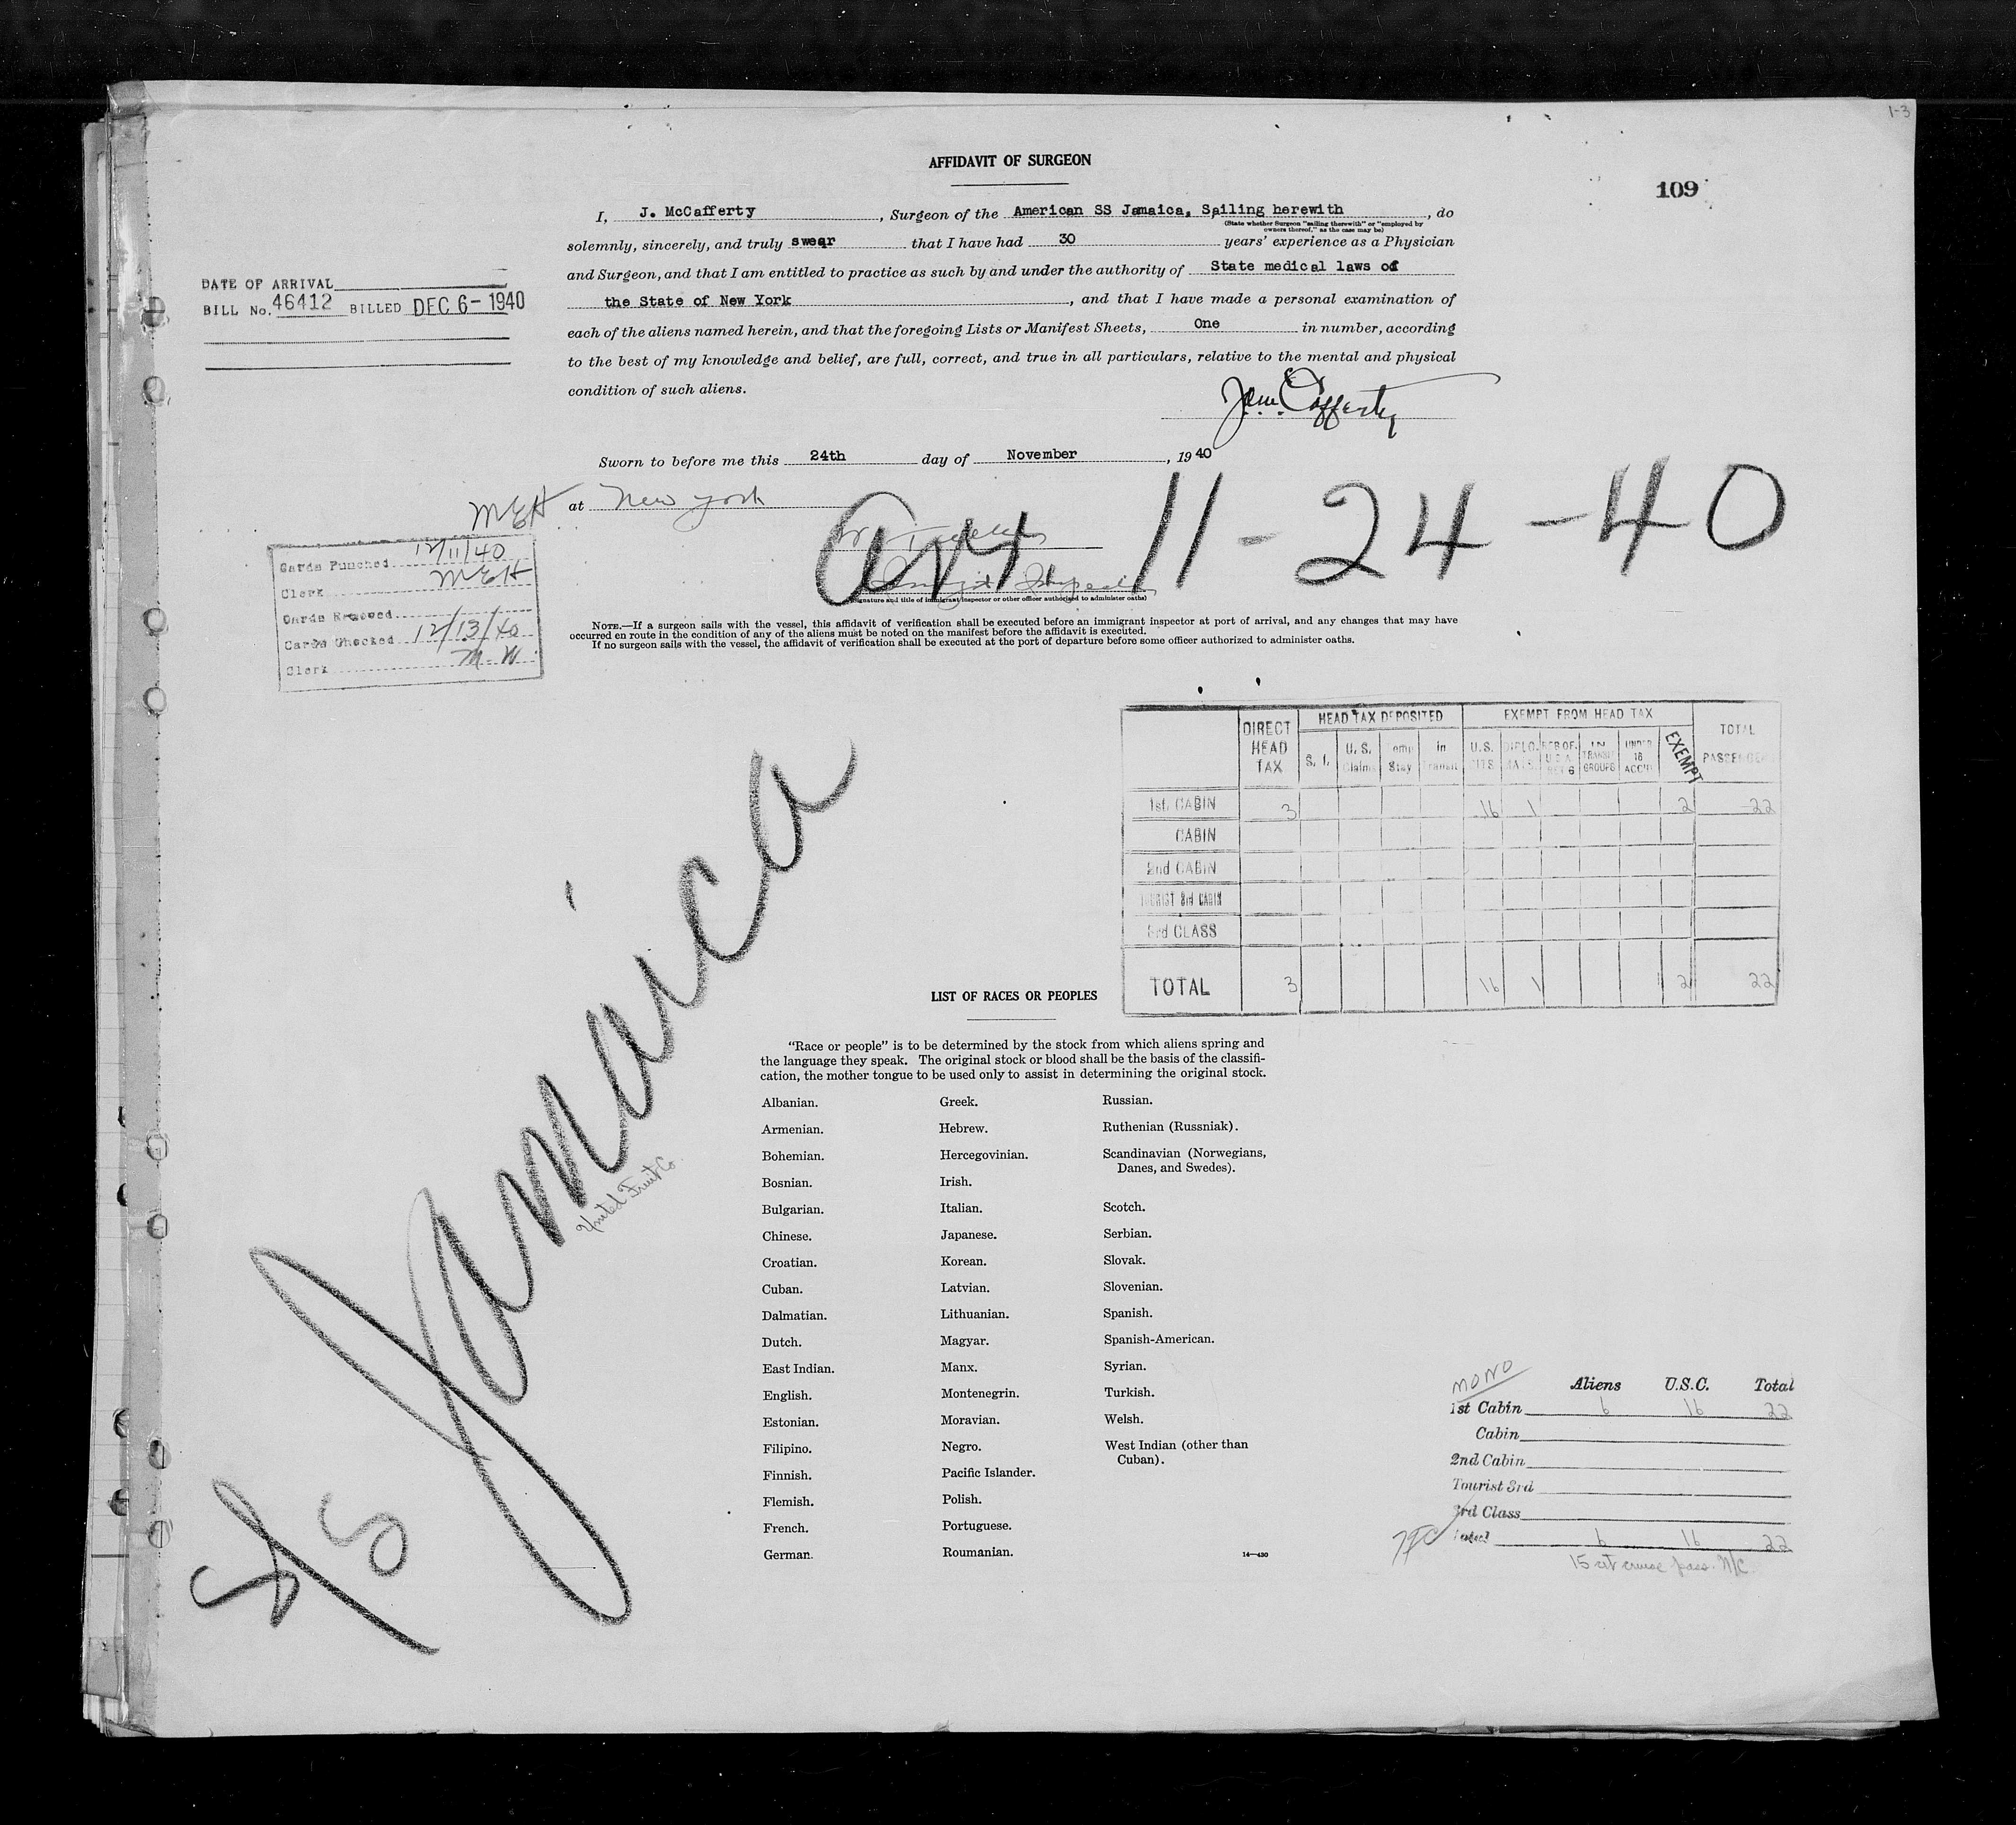 1-3
AFFIDAVIT OF SURGEON
109
I, J. McCafferty, Surgeon of the American SS Jamaica, Sailing herewith, do
(State whether Surgeon "sailing therewith" or "employed by
owners thereof," as the case may be)
solemnly, sincerely, and truly swear that I have had 30 years' experience as a Physician
and Surgeon, and that I am entitled to practice as such by and under the authority of State medical laws of
the State of New York, and that I have made a personal examination of
each of the aliens named herein, and that the foregoing Lists or Manifest Sheets, One in number, according
to the best of my knowledge and belief, are full, correct, and true in all particulars, relative to the mental and physical
condition of such aliens.
DATE OF ARRIVAL
BILL No. 46412 BILLED DEC 6-1940
Sworn to before me this 24th day of November, 1940
MEH at New York
Arr. 11-24-40
(Signature and title of immigrant inspector or other officer authorized to administer oaths)
Cards Punched 12/11/40
Clerk MEH
Cards Removed
Cards Checked 12/13/40
Clerk M W
NOTE.—If a surgeon sails with the vessel, this affidavit of verification shall be executed before an immigrant inspector at port of arrival, and any changes that may have
occurred en route in the condition of any of the aliens must be noted on the manifest before the affidavit is executed.
If no surgeon sails with the vessel, the affidavit of verification shall be executed at the port of departure before some officer authorized to administer oaths.
DIRECT HEAD TAX HEAD TAX DEPOSITED EXEMPT FROM HEAD TAX TOTAL PASSENGERS
S. I. U. S. Claims Temp Stay In Transit U.S. CITS. DIPLOMATS RES OF U S A IN TRANSIT GROUPS UNDER 16 ACC'D EXEMPT
1st. CABIN 3 16 1 2 22
CABIN
2nd CABIN
TOURIST 3rd CABIN
3rd CLASS
TOTAL 3 16 1 2 22
S/S Jamaica
United Fruit Co.
LIST OF RACES OR PEOPLES
"Race or people" is to be determined by the stock from which aliens spring and
the language they speak. The original stock or blood shall be the basis of the classifi-
cation, the mother tongue to be used only to assist in determining the original stock.
Albanian.
Armenian.
Bohemian.
Bosnian.
Bulgarian.
Chinese.
Croatian.
Cuban.
Dalmatian.
Dutch.
East Indian.
English.
Estonian.
Filipino.
Finnish.
Flemish.
French.
German.
Greek.
Hebrew.
Hercegovinian.
Irish.
Italian.
Japanese.
Korean.
Latvian.
Lithuanian.
Magyar.
Manx.
Montenegrin.
Moravian.
Negro.
Pacific Islander.
Polish.
Portuguese.
Roumanian.
Russian.
Ruthenian (Russniak).
Scandinavian (Norwegians,
Danes, and Swedes).
Scotch.
Serbian.
Slovak.
Slovenian.
Spanish.
Spanish-American.
Syrian.
Turkish.
Welsh.
West Indian (other than
Cuban).
14—430
MONO
Aliens U.S.C. Total
1st Cabin 6 16 22
Cabin
2nd Cabin
Tourist 3rd
3rd Class
Total 6 16 22
15 cit cruise pass. N/C